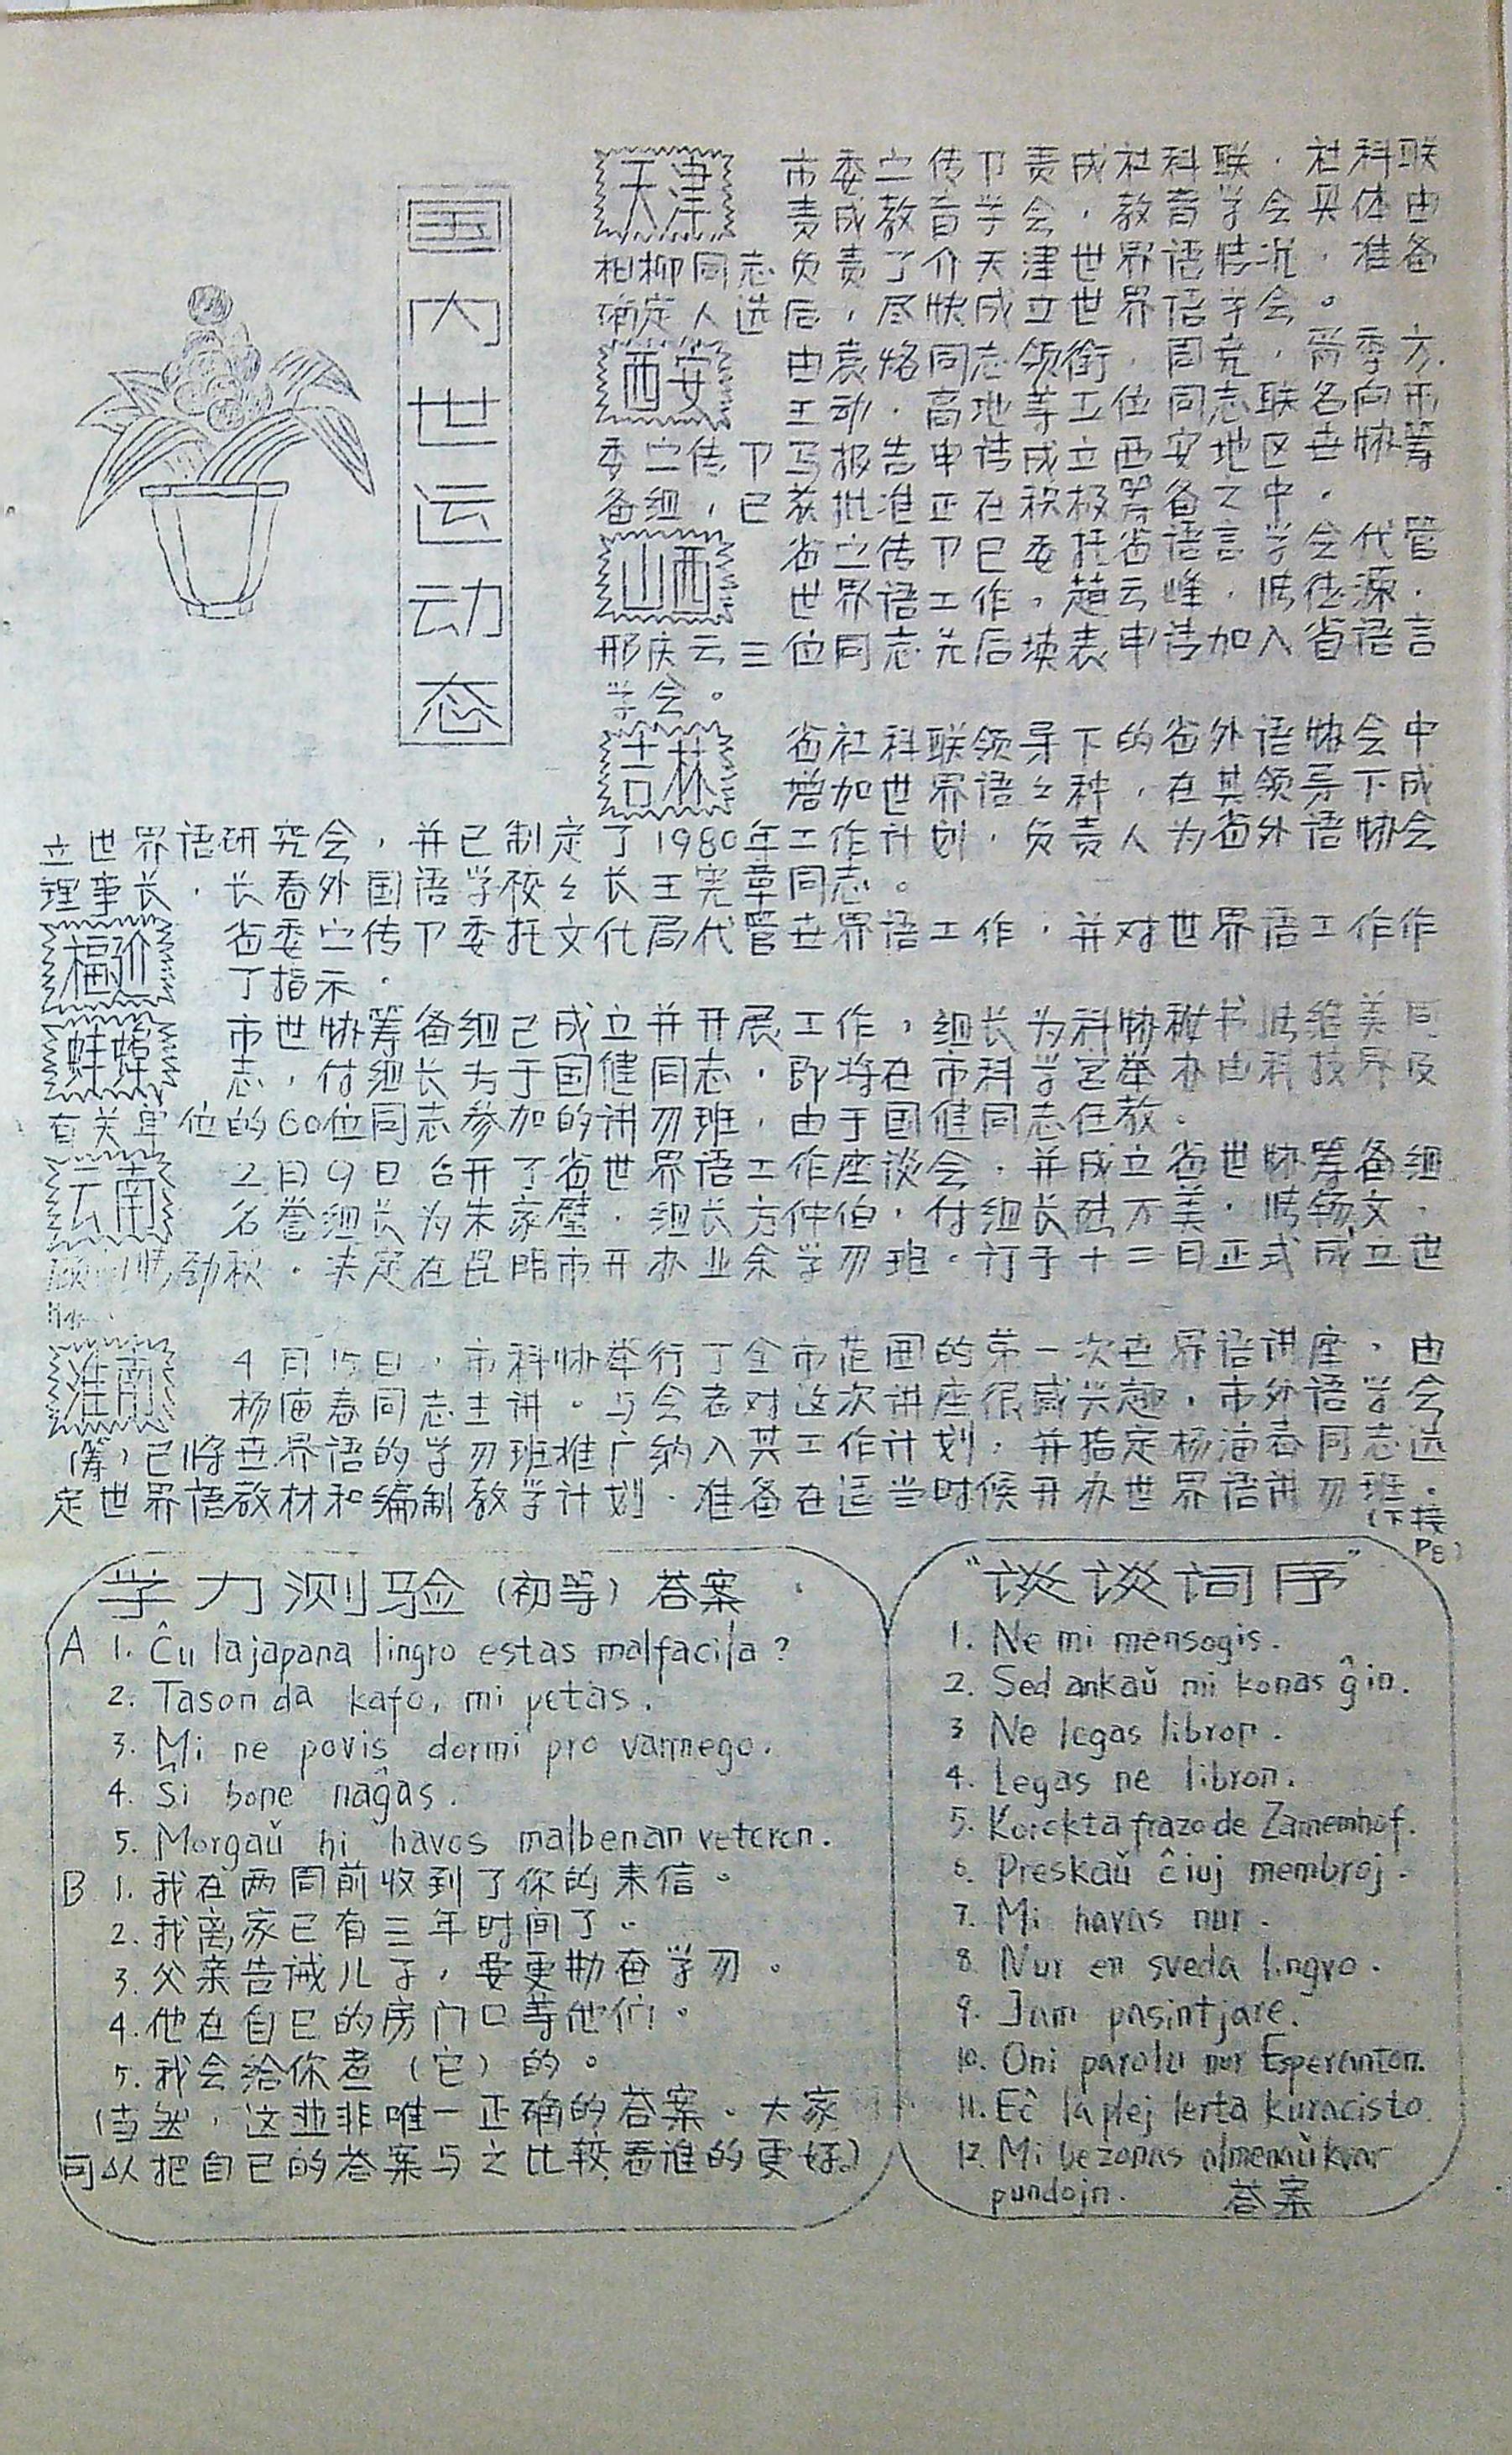 国内世运动态
天津 市委宀传卩责成社科联，社科联
责成教育学会，教育学会具体由
柏柳同志负责了介天津世界语情况，准备
确定人选后，尽快成立世界语学会。
西安 由袁烙同志领衔，周尧，
王动，高地等工位同志联名向市
委宀传卩写报告申请成立西安地区世协筹
备组，已获批准正在积极筹备之中。
山西 省宀传卩已委托省语言学会代管
世界语工作，赵云峰，
邢庆云三位同志先后填表申请加入省语言
学会。
吉林 省社科联领导下的省外语协会中
增加世界语 种，在其领导下成
立世界语研究会，并已制定了1980年工作计划，负责人为省外语协会
理事长，长春外国语学校 长王宪章同志。
福 省委宀传卩委托文化局代管世界语工作，并对世界语工作作
了指示。
蚌 市世协筹备组已成立并开展工作，组长为科协秘书 维美同
志，付组长为于国健同志，即将在市科学宫举办由科技界及
有关单位的60位同志参加的讲习班，由于国健同志任教。
云南 2月9日召开了省世界语工作座谈会，并成立省世协筹备组
名誉组长为朱家璧，组长方仲伯，付组长 万美，
劲秋。决定在昆明市开办业余学习班。订于十二日正式成立世

淮南 4月15日，市科协举行了全市范围的第一次世界语讲座，由
杨 春同志主讲。与会者对这次讲座很感兴趣，市外语学会
（筹）已将世界语的学习班推广纳入其工作计划，并指定杨 春同志选
定世界语教材和编制教学计划，准备在适当时候开办世界语讲习班。
（下接
P8）
学力测验（初等）答案
A 1. Ĉu la japana lingvo estas malfacila?
2. Tason da kafo, mi petas.
3. Mi ne povis dormi pro varmego.
4. Ŝi bone naĝas.
5. Morgaŭ ni havos malbenan veteron.
B 1. 我在两周前收到了你的来信。
2. 我离家已有三年时间了。
3. 父亲告诫儿子，要更勤奋学习。
4. 他在自己的房门口等他们。
5. 我会给你煮（它）的。
（当然，这並非唯一正确的答案。大家
可以把自己的答案与之比较看谁的更好。）
“谈谈词序”
1. Ne mi mensogis.
2. Sed ankaŭ mi konas ĝin.
3 Ne legas libron.
4. Legas ne libron.
5. Korekta frazo de Zamemhof.
6. Preskaŭ ĉiuj membroj.
7. Mi havas nur.
8. Nur en sveda lingvo.
9. Jam pasintjare.
10. Oni parolu nur Esperanton.
11. Eĉ la plej lerta kuracisto.
12. Mi bezonas almenaŭ kvar
pundojn. 答案